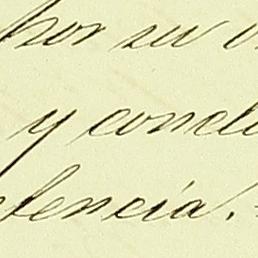 por su
y conclu
dencia.